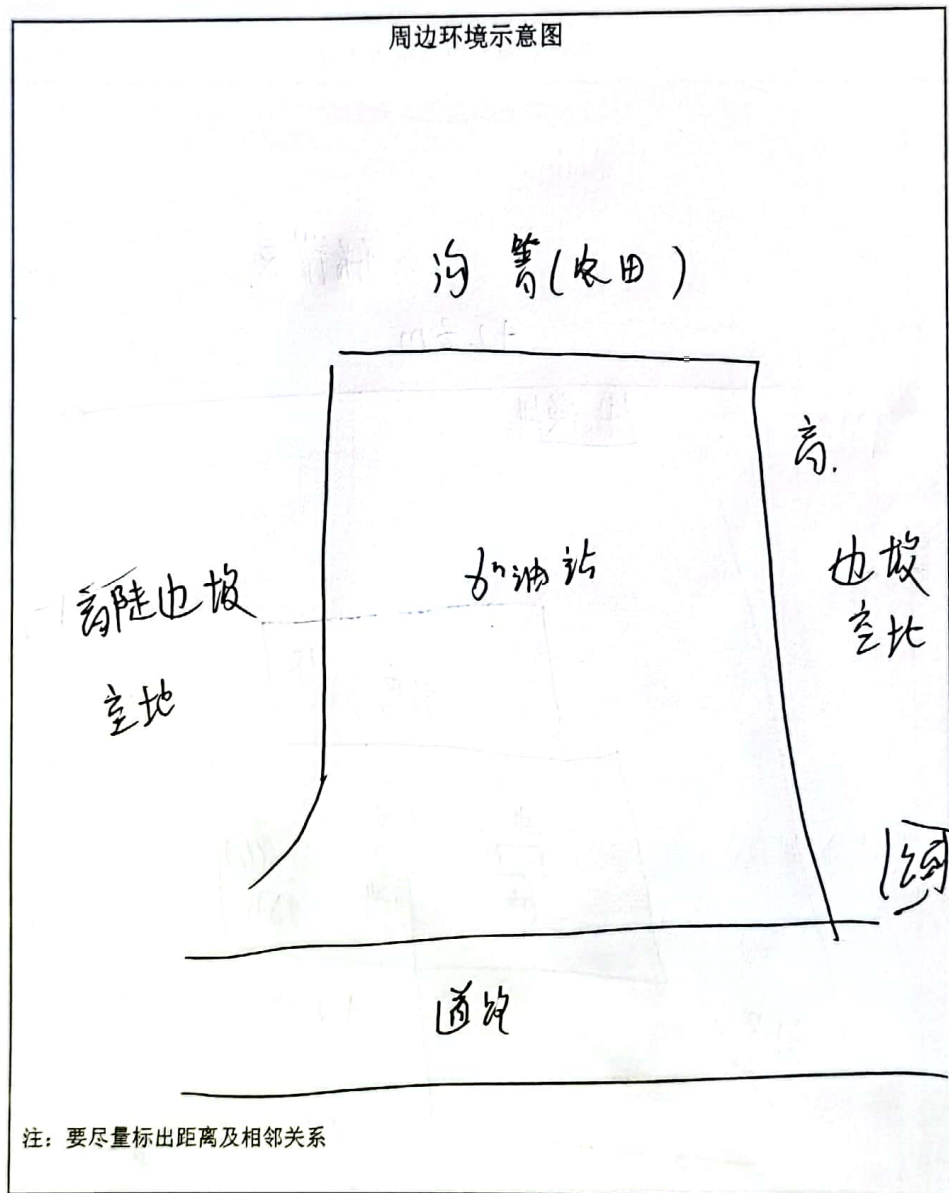 周边环境示意图
沟箐(农田)
高.
加油站
高陡边坡
边坡
空地
空地
道路
注：要尽量标出距离及相邻关系